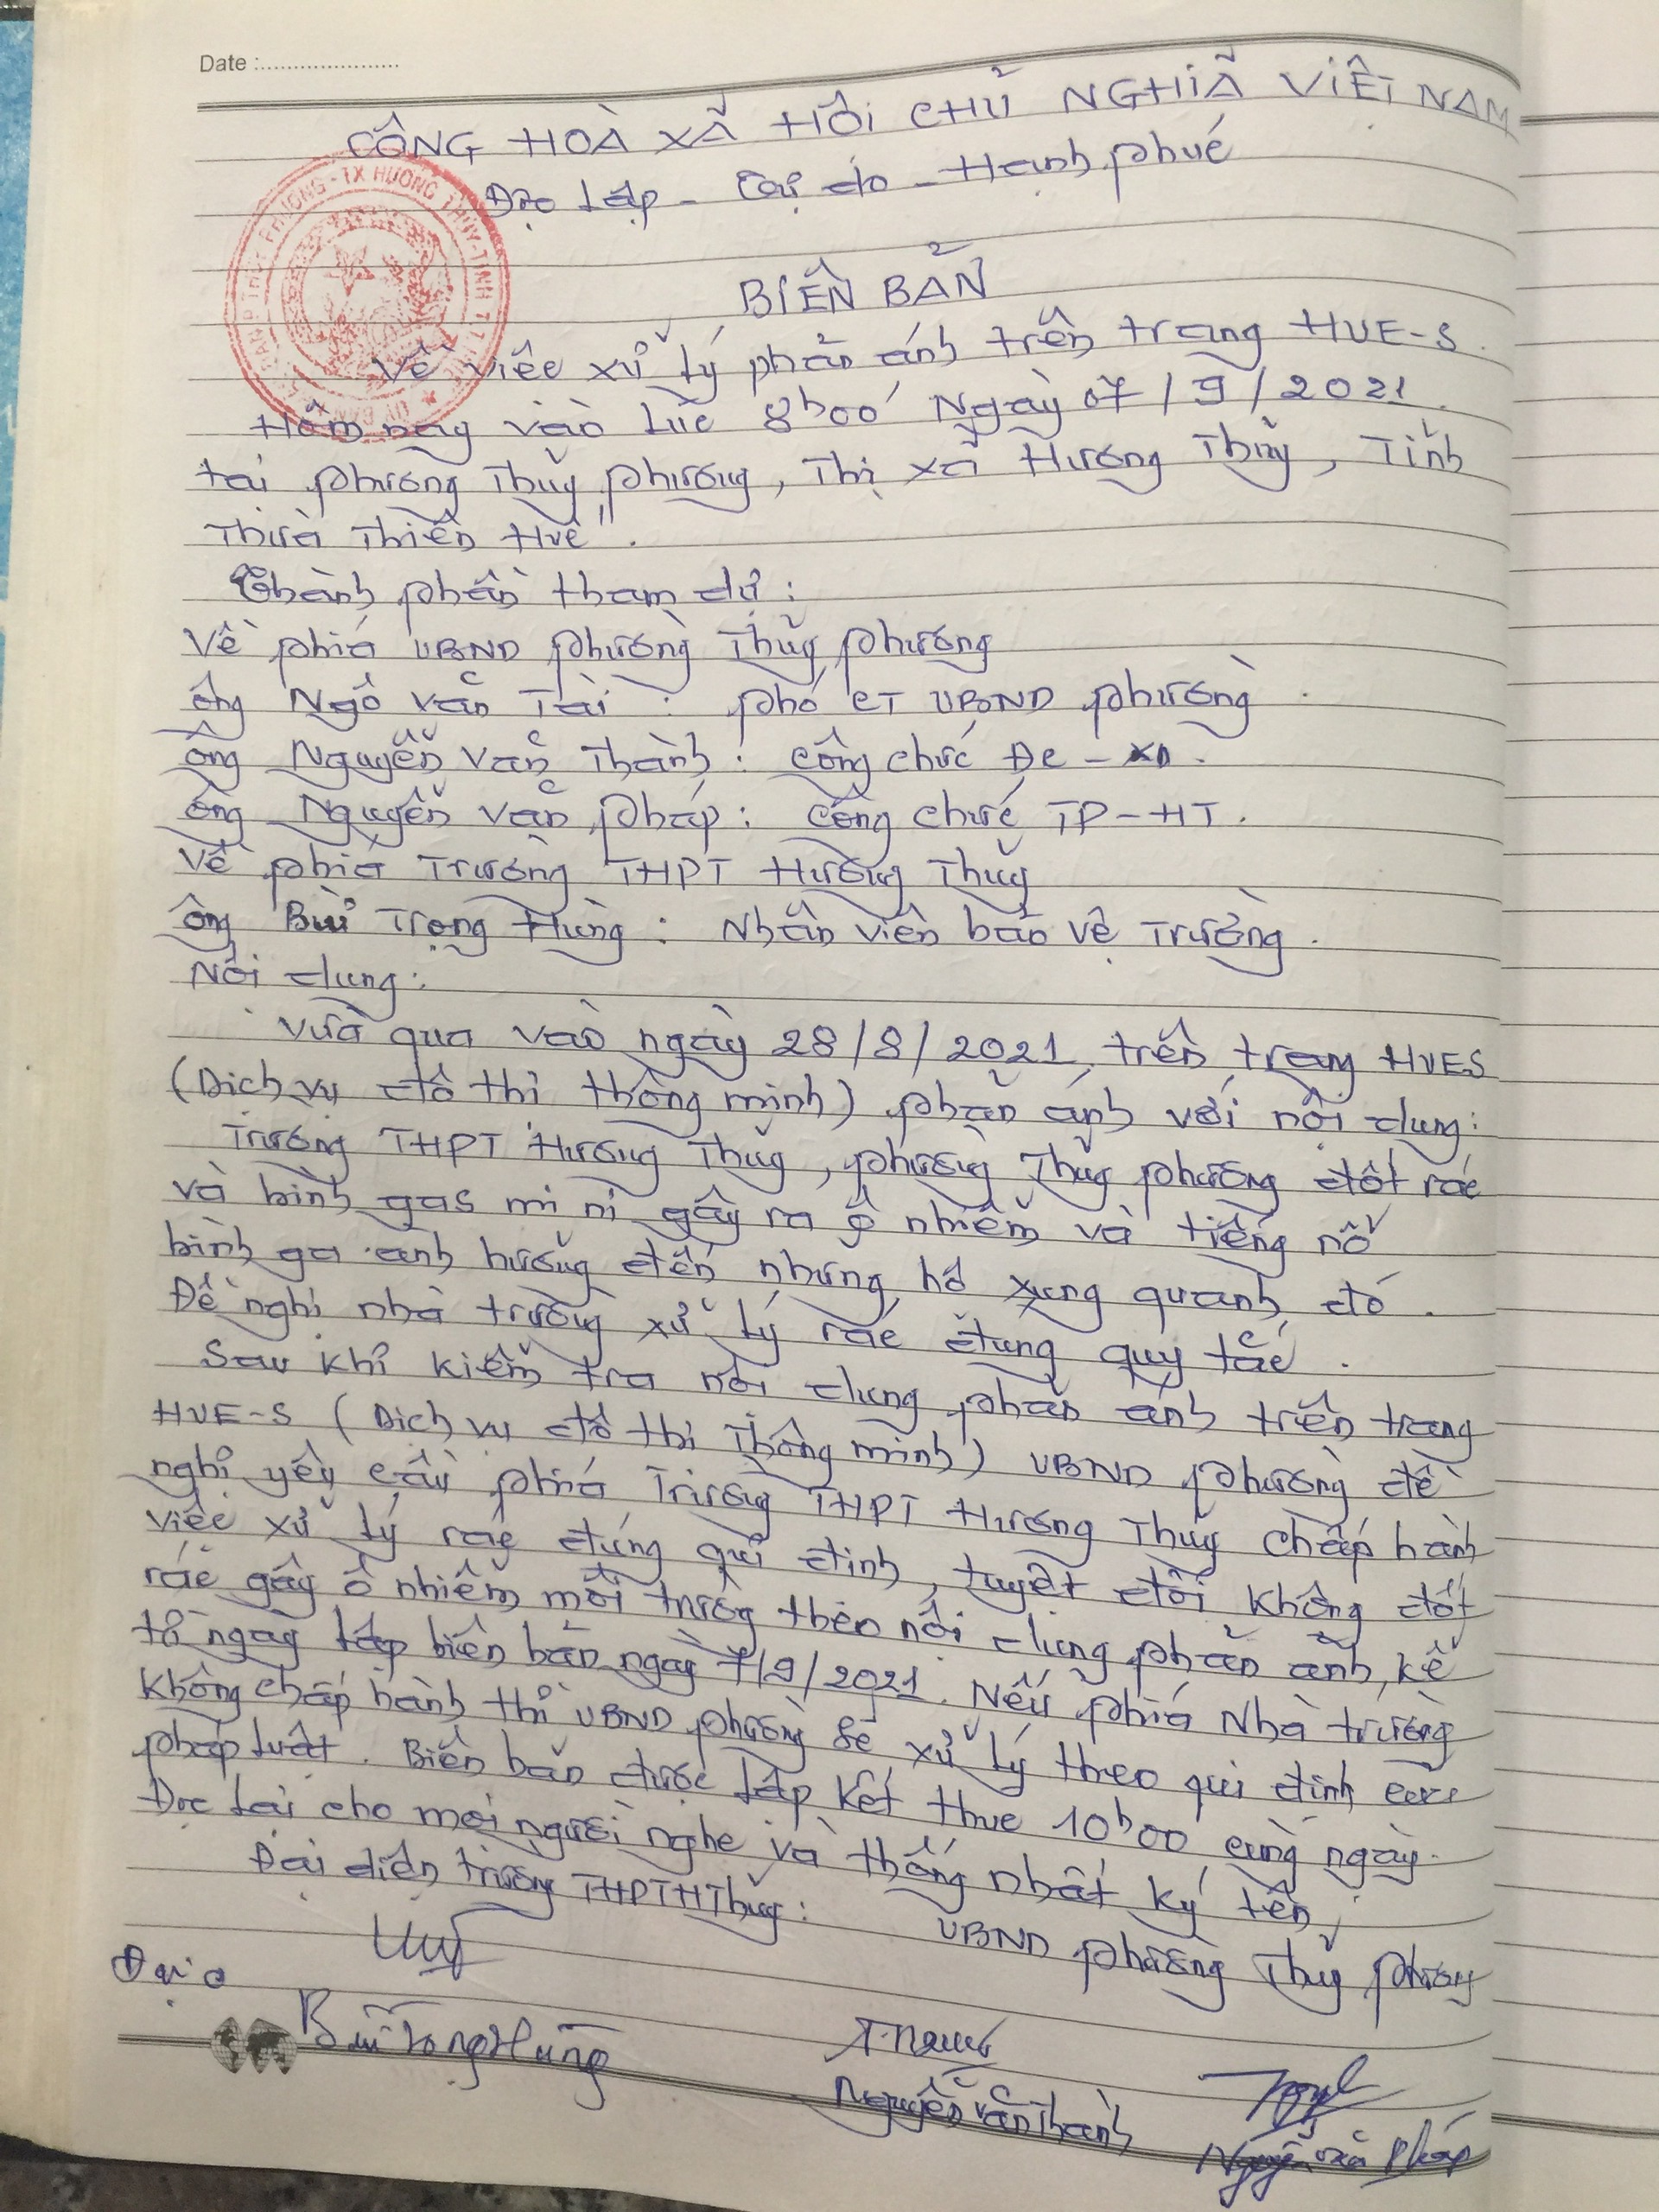 Date :......................
CÔNG HOÀ XÃ HỘI CHỦ NGHĨA VIỆT NAM
Độc lập - Tự do - Hạnh phúc
PHƯƠNG - TX HƯƠNG THỦY - TỈNH T.T
BIÊN BẢN
Về việc xử lý phản ánh trên trang HUE-S.
Hôm nay vào lúc 8h00' Ngày 07/9/2021.
tại phường Thủy phương, Thị xã Hương Thủy, Tỉnh
Thừa Thiên Huế.
Thành phần tham dự:
Về phía UBND phường Thủy phương
ông Ngô Văn Tài : phó CT UBND phường.
ông Nguyễn Văn Thành : công chức ĐC - XD.
ông Nguyễn Văn Pháp : công chức TP-HT.
Về phía Trường THPT Hương Thủy
ông Bùi Trọng Hùng : Nhân viên bảo vệ Trường.
Nội dung:
Vừa qua vào ngày 28/8/2021, trên trang HUES
(Dịch vụ đô thị thông minh) phản ánh với nội dung:
Trường THPT Hương Thủy, phường Thủy phương đốt rác
và bình gas mi ni gây ra ô nhiễm và tiếng nổ
bình ga ảnh hưởng đến những hộ xung quanh đó.
Đề nghị nhà trường xử lý rác đúng quy tắc.
Sau khi kiểm tra nội dung phản ánh trên trang
HUE-S (Dịch vụ đô thị Thông minh) UBND phường đề
nghị yêu cầu phía Trường THPT Hương Thủy chấp hành
việc xử lý rác đúng qui định, tuyệt đối không đốt
rác gây ô nhiễm môi trường theo nội dung phản ánh, kể
từ ngày lập biên bản ngày 7/9/2021. Nếu phía Nhà trường
không chấp hành thì UBND phường sẽ xử lý theo qui định của
pháp luật. Biên bản được lập kết thúc 10h00' cùng ngày.
Đọc lại cho mọi người nghe và thống nhất ký tên,
Đại diện trường THPT HThủy: UBND phường Thủy phương
Bùi Trọng Hùng
Nguyễn Văn Thành
Nguyễn Văn Pháp